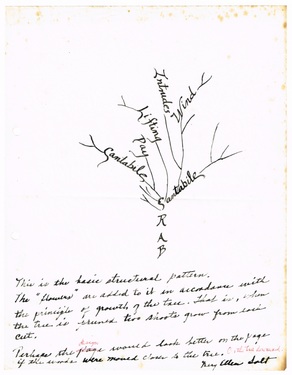 Intrudes
Wind
Lifting
Day
Cantabile
Cantabile
S
R
A
B
This is the basic structural pattern.
The "flowers" are added to it in accordance with
the principle of growth of the tree. That is, when
the tree is pruned two shoots grow from each
cut.
Perhaps the page would look better on the page
if the words were moved closer to the tree.
Mary Ellen Solt